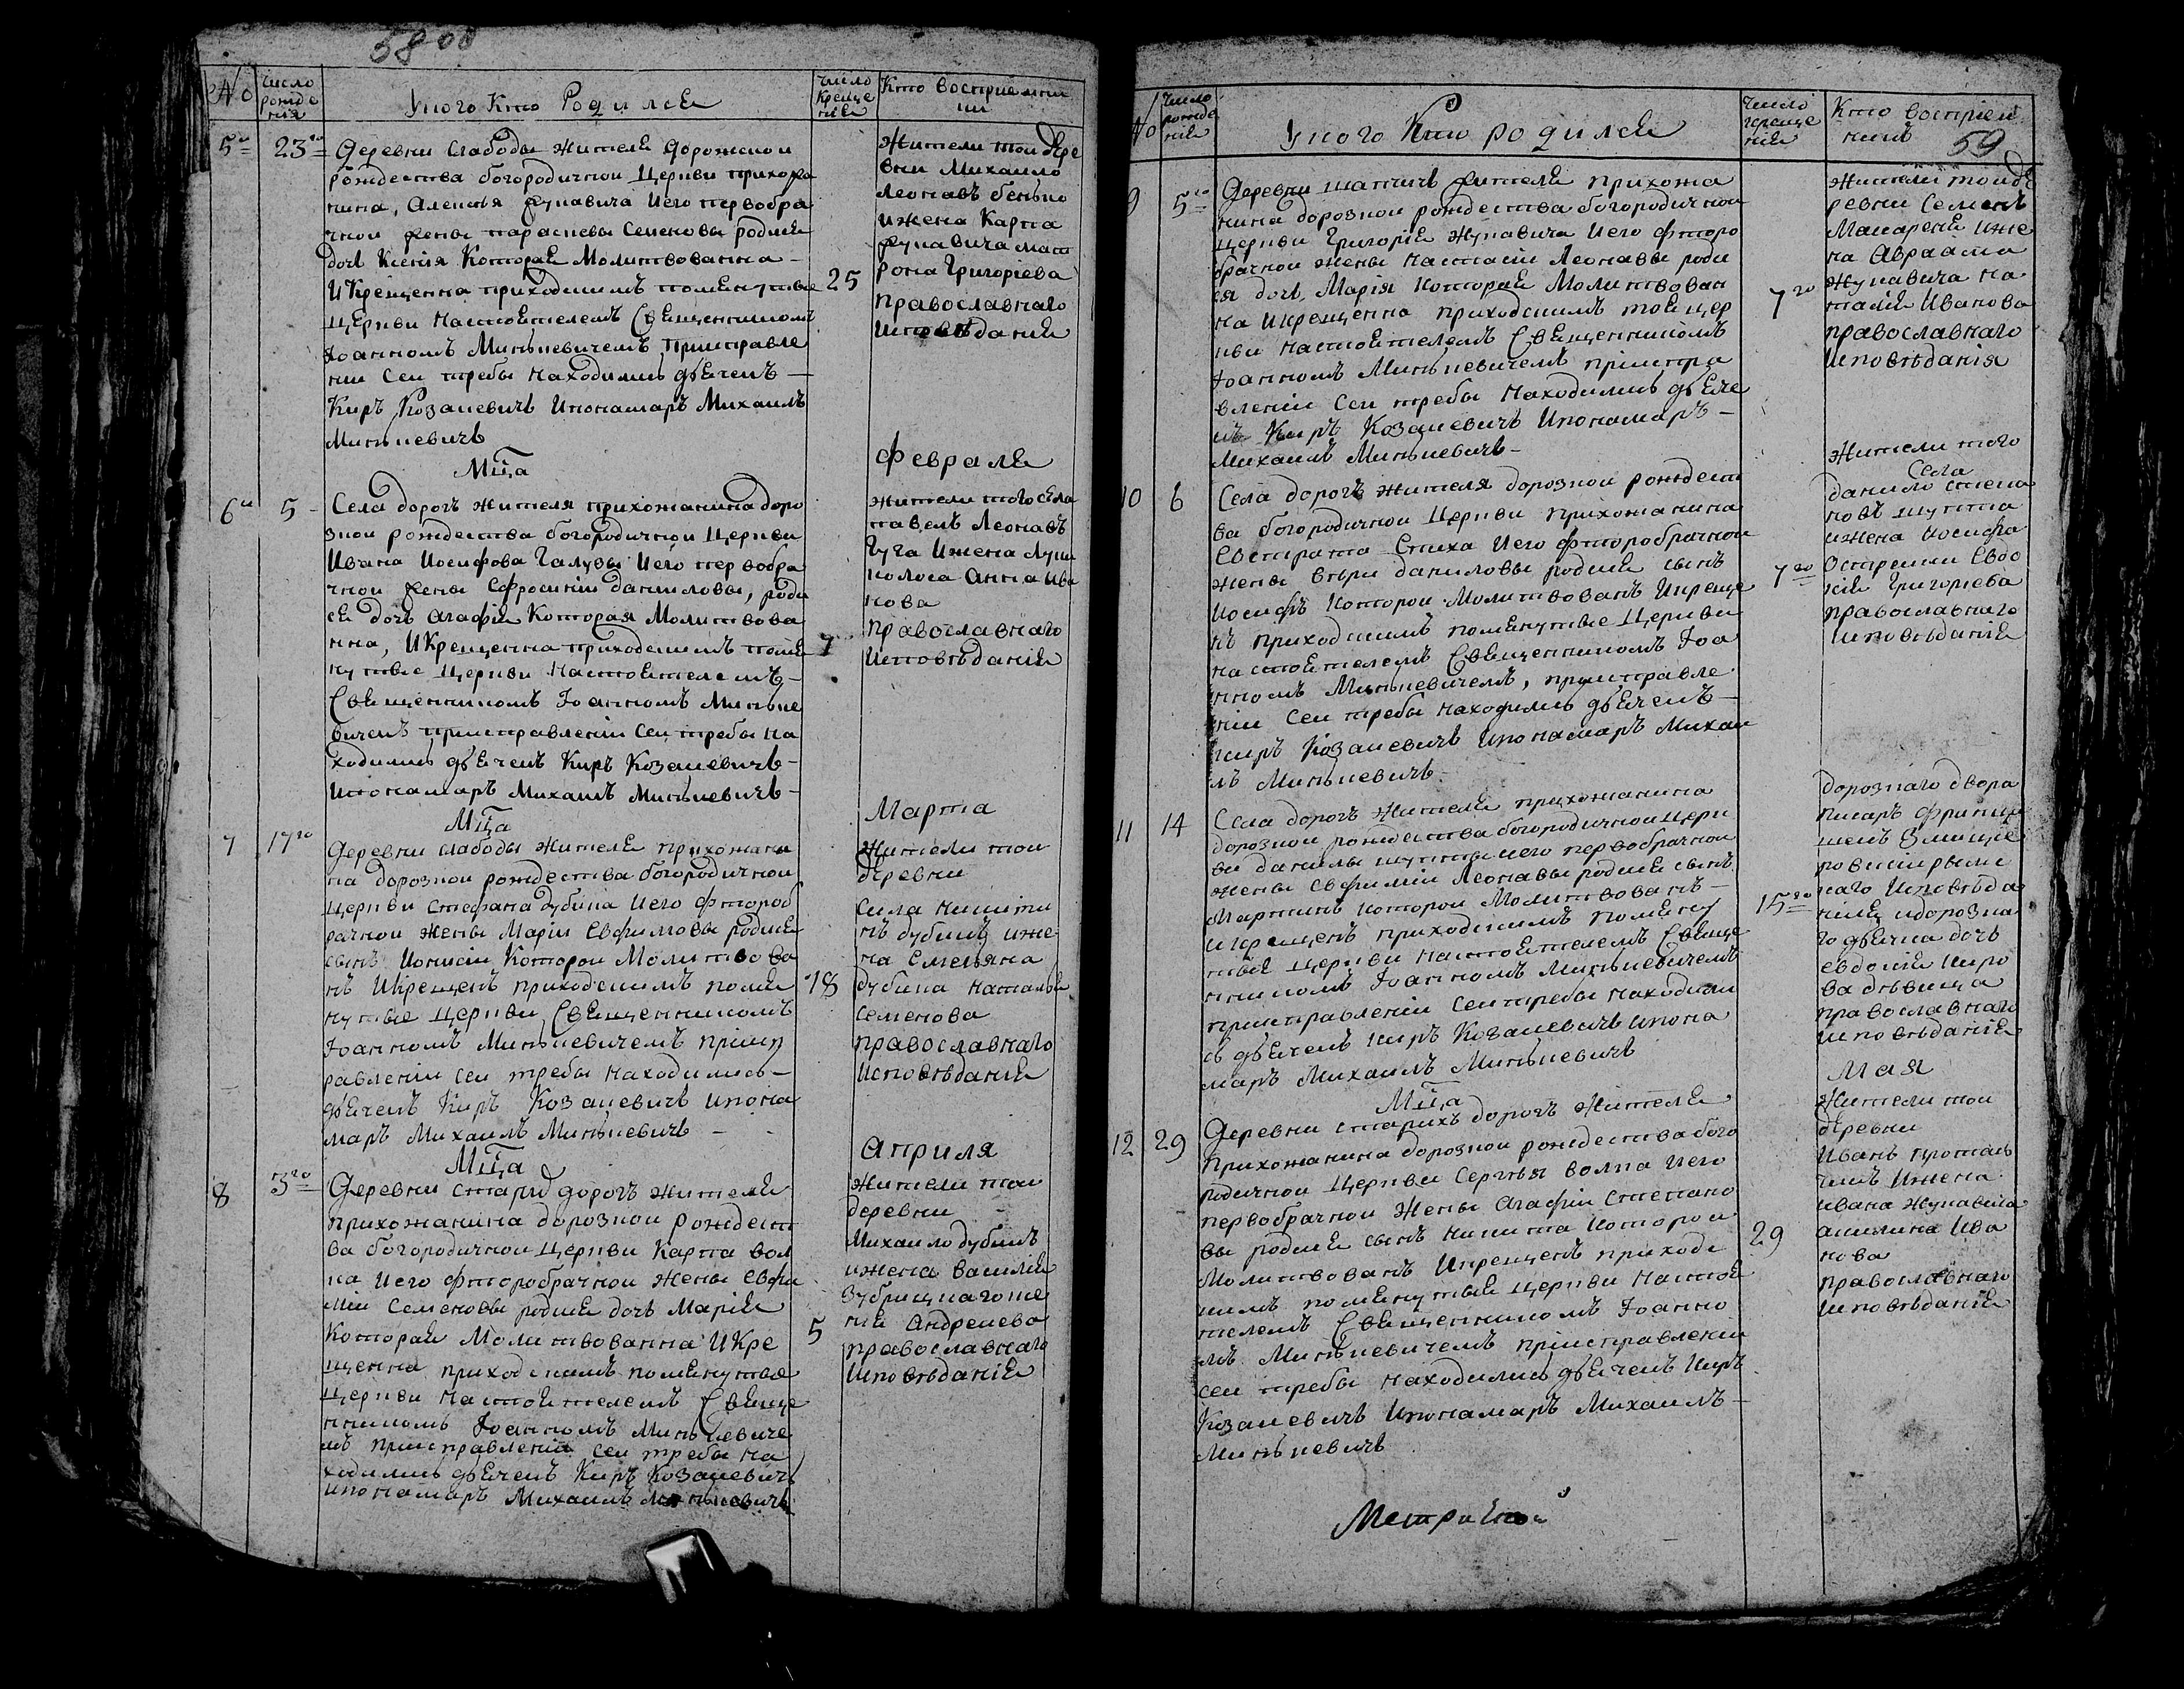 58 об
№
Число рожде ния
У кого Кто Родился
Число Креще ния
Кто восприемни ки
5го
23го
Деревни Слабоды Жителя Дорожской
рождества богородичной Церкви прихожа
нина, Алексея Жукавича и его первобра
чной жены параскевы Семеновы родися
дочь Ксенія Которая Молитвованна
И Крещенна приходскимъ помянутые
Церкви Настоятелемъ Священникомъ
Іоанномъ Минькевичемъ при исправле
нии Сеи требы Находились дьячекъ
Киръ Козакевичъ Ипонамаръ Михаилъ
Минькевичъ
25
Жители той дере
вни Михайло
Леонавъ
и жена Карпа
Жукавича мат
рона Григоріева
православнаго
исповѣданія
Мца
Февраля
6го
5
Села дорогъ жителя прихожанина доро
зкой рождества богородичной Церкви
Ивана Иосифова Галузы и его первобра
чной жены Ефросиніи даниловы, роди
ся дочь Агафія Которая Молитвова
нна, И Крещенна приходскимъ помя
нутые Церкви Настоятелемъ
Священникомъ Іоанномъ Минкке
вичемъ при исправленіи сеи требы на
ходились дьячекъ Киръ Козакевичъ
ипонамаръ Михаилъ Минькевичъ
7
жители того села
павелъ Леонавъ
и жена Луки
Анна Ива
нова
православнаго
исповѣданія
Мца
Марта
7
17го
Деревни слабоды жителя прихожани
на дорозкой рождества богородичной
Церкви Стефана дубика и его фтороб
рачной жены Маріи Евфимовы родися
сынъ Ионисій Которой Молитвова
нъ И Крещенъ приходскимъ помя
нутые Церкви, Священникомъ
Іоанномъ Минькевичемъ при исп
равлении сеи требы находились
дьячекъ Киръ Козакевичъ ипона
маръ Михаилъ Минькевичъ
18
Жители той
деревни
Сила Никити
нъ дубикъ и же
на Емельяна
дубика Наталья
Семенова
православнаго
Исповѣданія
Мца
Априля
8
3го
Деревни старыхъ дорогъ жителя
прихожанина дорозкой рождест
ва богородичной Церкви Карпа вол
ка и его фторобрачной жены Евфи
міи Семеновы родися дочь Марія
Которая Молитвованна И Кре
щенна приходскимъ помянутые
Церкви Настоятелемъ Свяще
нникомъ Іоанномъ Минкевиче
мъ при исправленіи сеи требы на
ходились дьячекъ Киръ Козакевичъ
ипонамаръ Михаилъ Минькевичъ
5
Жители той
деревни
Михайло дубикъ
и жена Василія
Андреева
православнаго
исповѣданія
№
Число рожде нія
У кого Кто родился
Число креще нія
Кто воспріем никъ
59
9
5го
Деревни шапчичъ жителя прихожа
нина дорозкой рождества богородичной
церкви Григорія Жукавича и его фторо
брачной жены Настасіи Леонавы роди
ся дочь, Марія Которая Молитвован
на и крещенна приходскимъ тоя цер
кви настоятелемъ Священникомъ
Іоанномъ Миньиевичемъ при испра
вленіи сеи требы Находились дьяче
къ Киръ Козакевичъ Ипонамаръ
Михаилъ Миньиевичъ
7го
Жители той де
ревни Семенъ
Макареня и же
на Авраама
Жукавича На
талія Иванова
православнаго
исповѣданія
10
6
Села дорогъ жителя дорозкой рождест
ва богородичной Церкви прихожанина
Евстрата Стиха и его фторобрачной
жены вѣры даниловы родися сынъ
Иосифъ которой Молитвованъ и креще
нъ приходскимъ помянутые Церкви
настоятелемъ Священникомъ Іоа
нномъ Миньиевичемъ, при исправле
ніи сеи требы находились дьячекъ
киръ Козакевичъ ипонамаръ Михаи
лъ Миньиевичъ
7го
Жители того
Села
данило степа
новъ шупта
и жена иосифа
Остреики Евдо
кія Григоріева
православнаго
исповѣданія
11
14
Села дорогъ Жителя прихожанина
дорозкой рождества богородичной церк
ви данилы шупты и его первобрачной
жены Евфиміи Леонавы родися сынъ
Мартинъ которой Молитвованъ
и крещенъ приходскимъ помяну
тые церкви настоятелемъ Свяще
нникомъ Іоанномъ Миньиевичемъ
при исправленіи сеи требы находили
сь дьячекъ киръ Козакевичъ ипона
маръ Михаилъ Миньиевичъ
15го
дорозкаго двора
писаръ Францы
шекъ
римс
каго Исповѣда
нія и дорозка
го дьячка дочь
Евдокія Киро
ва дѣвица
православнаго
исповѣданія
Мца
Мая
12
29
Деревни старихъ дорогъ Жителя
прихожанина дорозкой рождества бого
родичной Церкви Сергѣя Волка и его
первобрачной Жены Агафіи Степано
вы родися сынъ Никита которой
Молитвованъ И крещенъ приходс
кимъ помянутыя церкви настоя
телемъ Священникомъ Іоанно
мъ Миньиевичемъ при исправленіи
сеи требы находились дьячекъ Киръ
Козакевичъ Ипонамаръ Михаилъ
Миньиевичъ
29
Жители той
деревни
Иванъ
и жена
ивана Жукавича
акилина Ива
нова
православнаго
исповѣданія